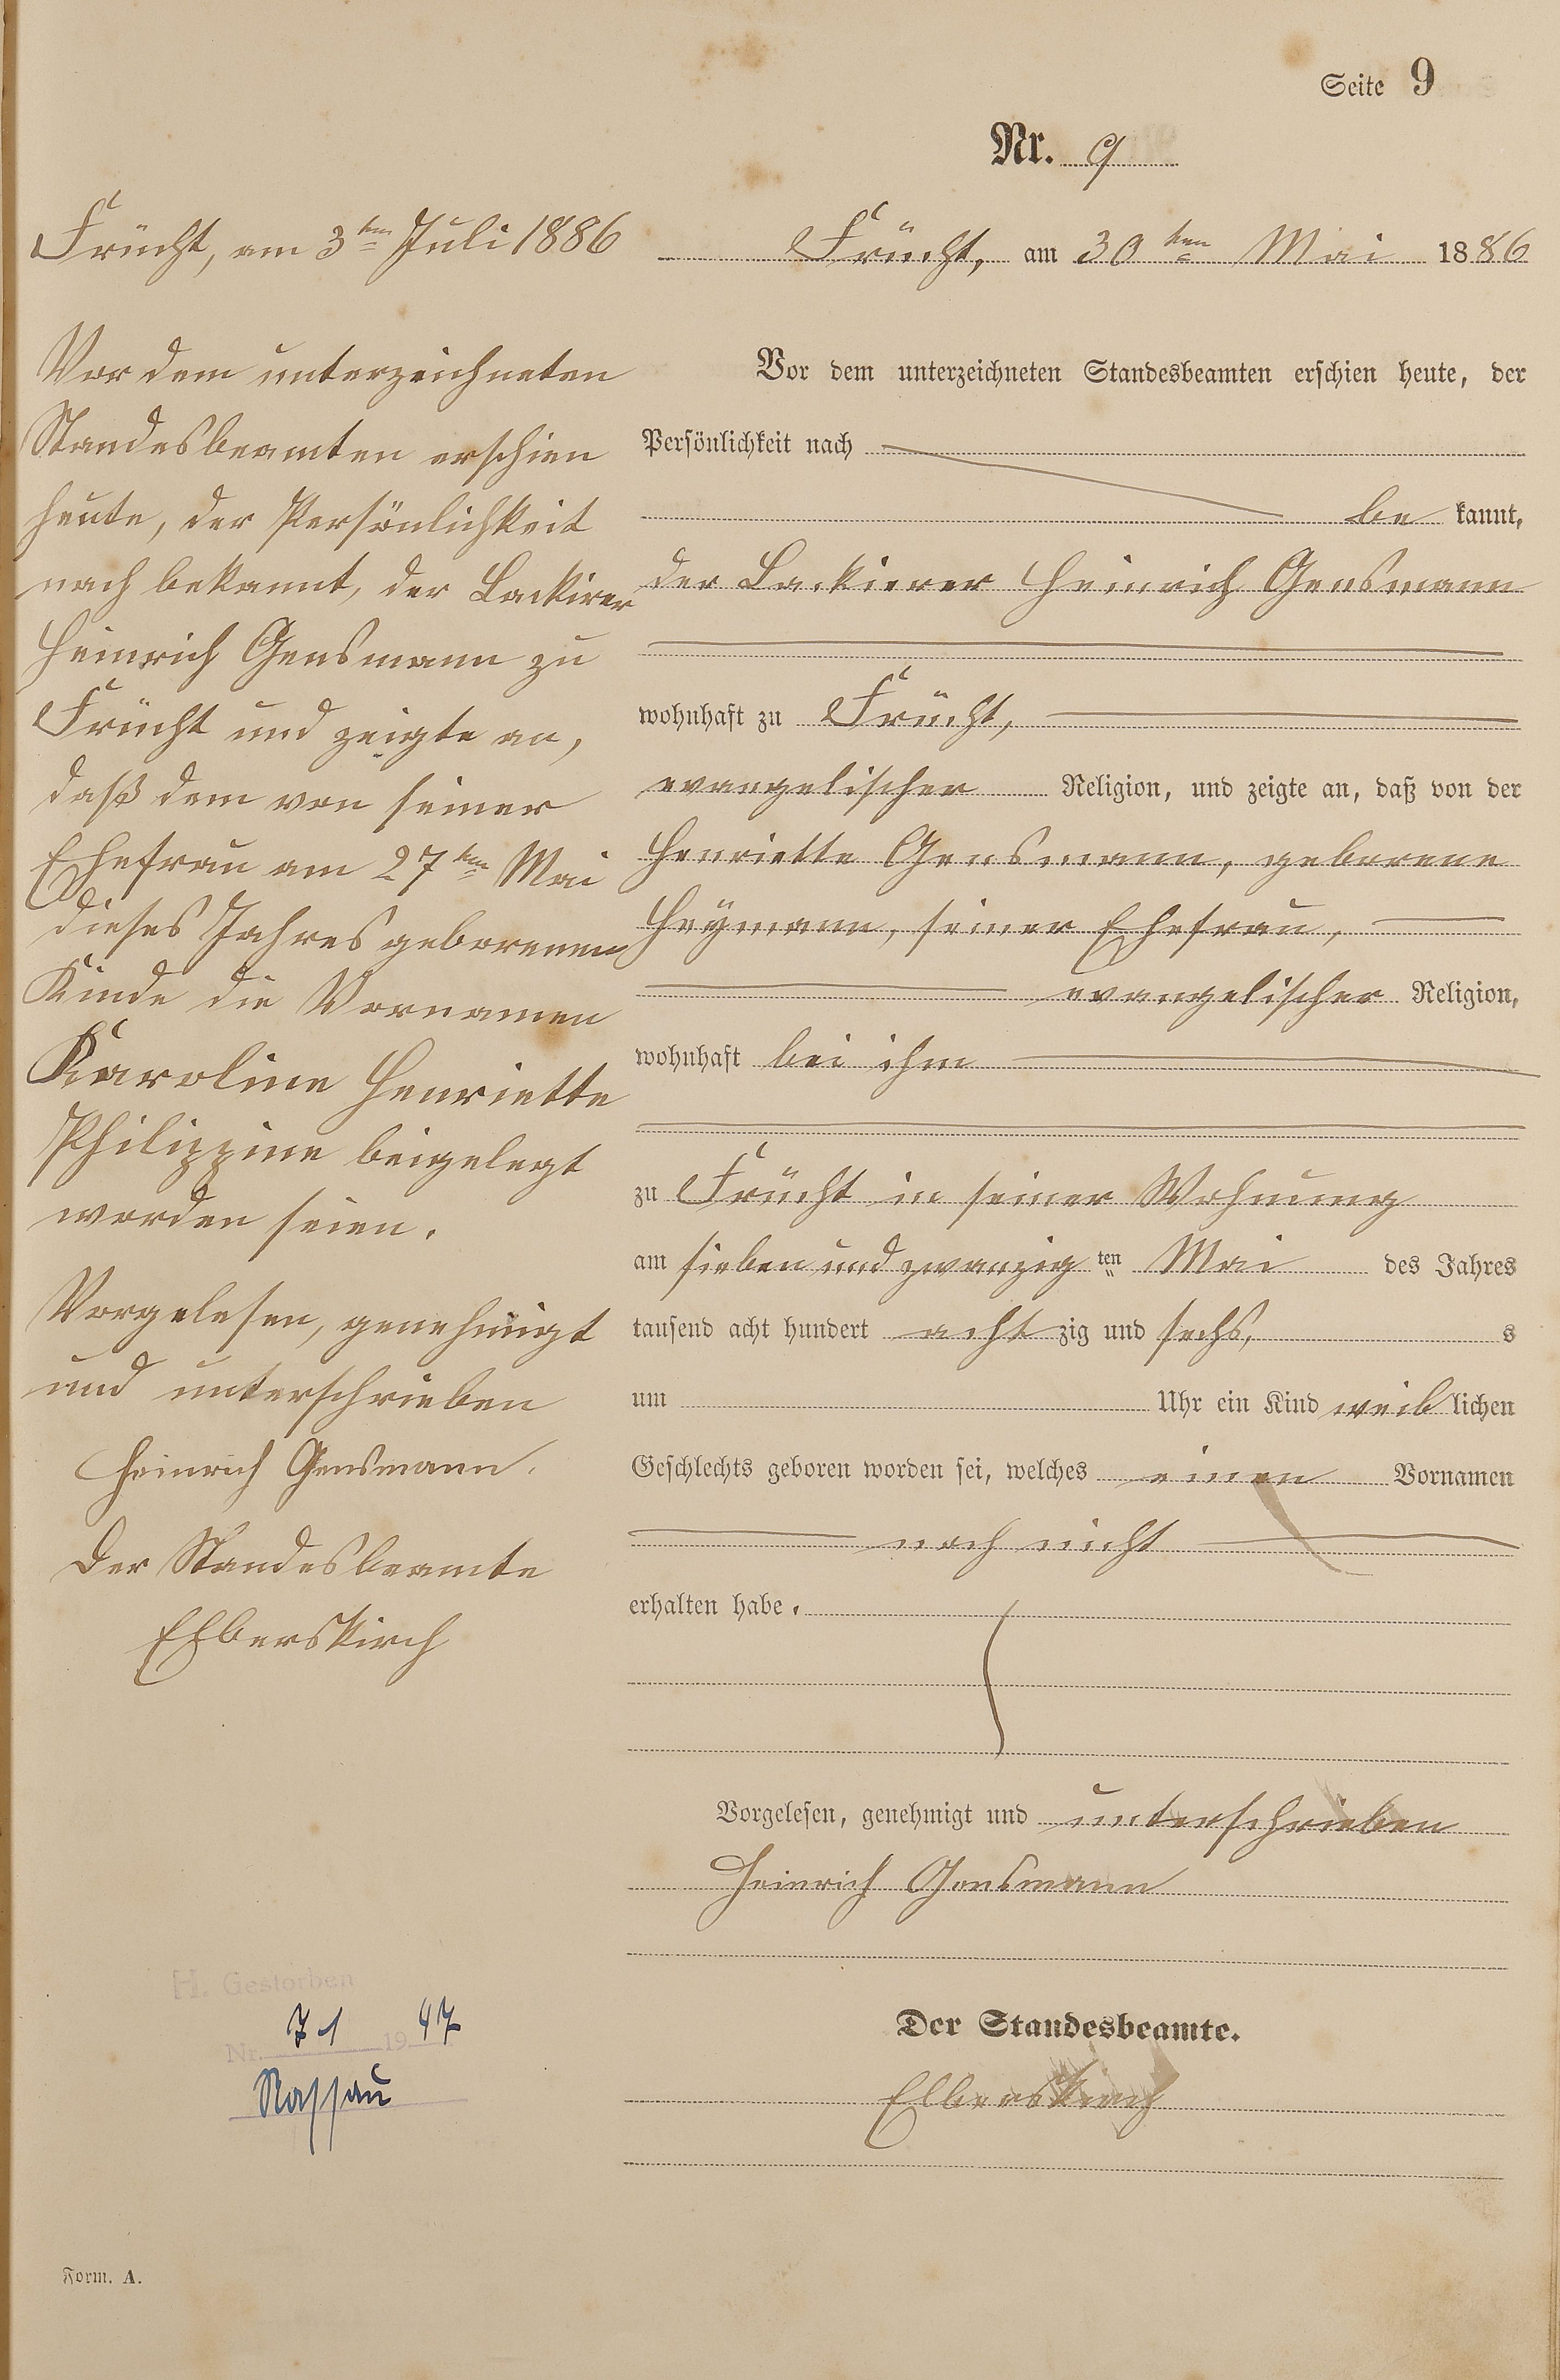 Seite 9
Nr. 9
Frücht, am 3ten Juli 1886
Vor dem unterzeichneten
Standesbeamten erschien
heute, der Persönlichkeit
nach bekannt, der Lackirer
Heinrich Gensmann zu
Frücht und zeigte an,
daß dem von seiner
Ehefrau am 27ten Mai
dieses Jahres geborenen
Kinde die Vornamen
Karoline Henriette
Philippine beigelegt
worden seien.
Vorgelesen, genehmigt
und unterschrieben
Heinrich Gensmann.
Der Standesbeamte
Elberskirch
H. Gestorben
Nr. 71 1947
Nassau
Form. A.
Frücht, am 30ten Mai 1886
Vor dem unterzeichneten Standesbeamten erschien heute, der
Persönlichkeit nach
be kannt,
der Lackierer Heinrich Gensmann
wohnhaft zu Frücht,
evangelischer Religion, und zeigte an, daß von der
Henriette Gensmann, geborene
Heymann, seiner Ehefrau,
evangelischer Religion,
wohnhaft bei ihm
zu Frücht in seiner Wohnung
am sieben und zwanzig ten Mai des Jahres
tausend acht hundert acht zig und sechs, s
um Uhr ein Kind weib lichen
Geschlechts geboren worden sei, welches einen Vornamen
noch nicht
erhalten habe.
Vorgelesen, genehmigt und unterschrieben
Heinrich Gensmann
Der Standesbeamte.
Elberskirch